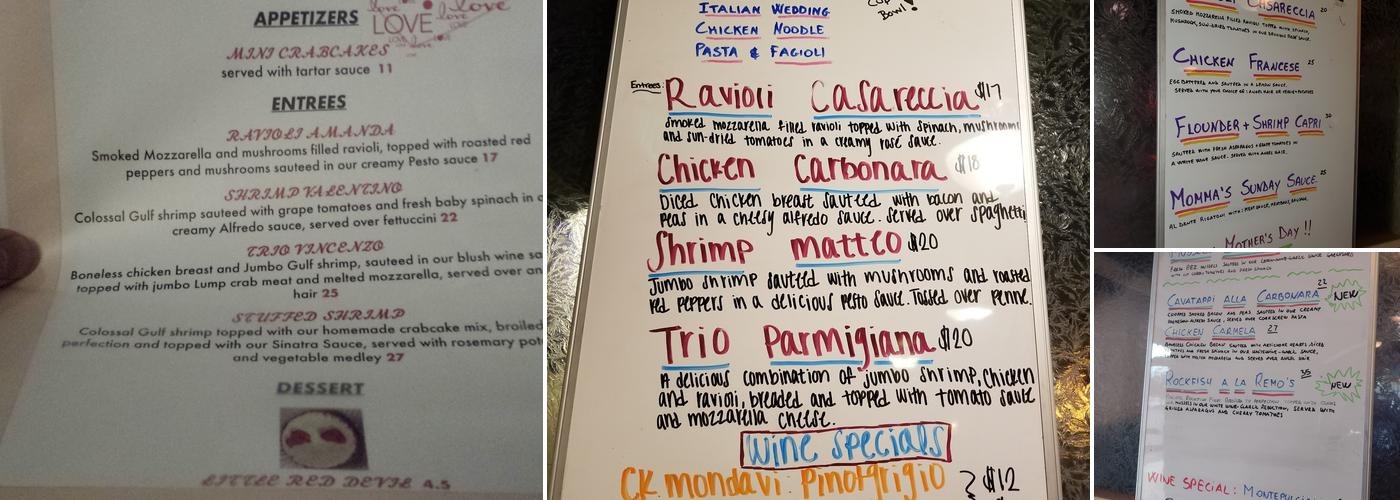 APPETIZERS
love
LOVE
love
love
MINI CRABCAKES
served with tartar sauce 11
ENTREES
RAVIOLI AMANDA
Smoked Mozzarella and mushrooms filled ravioli, topped with roasted red
peppers and mushrooms sauteed in our creamy Pesto sauce 17
SHRIMP VALENTINO
Colossal Gulf shrimp sauteed with grape tomatoes and fresh baby spinach in
creamy Alfredo sauce, served over fettuccini 22
TRIO VINCENZO
Boneless chicken breast and Jumbo Gulf shrimp, sauteed in our blush wine
topped with jumbo Lump crab meat and melted mozzarella, served over
hair 25
STUFFED SHRIMP
Colossal Gulf shrimp topped with our homemade crabcake mix, broiled
perfection and topped with our Sinatra Sauce, served with rosemary
and vegetable medley 27
DESSERT
LITTLE RED DEVIL 4.5
Bowl!
ITALIAN WEDDING
CHICKEN NOODLE
PASTA & FAGIOLI
Entrees:
Ravioli Casareccia $17
Smoked mozzarella filled ravioli topped with spinach, mushrooms
and sun-dried tomatoes in a creamy rosé sauce.
Chicken Carbonara $18
Diced Chicken breast sautéed with bacon and
peas in a cheesy alfredo sauce. Served over spaghetti
Shrimp matteo $20
Jumbo shrimp sautéed with mushrooms and roasted
red peppers in a delicious pesto sauce. Tossed over penne.
Trio Parmigiana $20
A delicious combination of jumbo shrimp, chicken
and ravioli, breaded and topped with tomato sauce
and mozzarella cheese.
wine specials
CK mondavi Pinot grigio $12
CASARECCIA 20
SMOKED MOZZARELLA FILLED RAVIOLI TOPPED WITH
MUSHROOM, SUN-DRIED TOMATOES IN A ROSE SAUCE.
CHICKEN FRANCESE 25
EGG BATTERED AND SAUTEED IN A LEMON SAUCE.
SERVED WITH YOUR CHOICE OF: ANGEL HAIR OR VEGGIE+POTATOES
FLOUNDER + SHRIMP CAPRI 30
SAUTEED WITH FRESH ASPARAGUS + GRAPE TOMATOES IN
A WHITE WINE SAUCE. SERVED WITH ANGEL HAIR.
MOMMA'S SUNDAY SAUCE 25
AL DENTE RIGATONI WITH: MEAT SAUCE, MEATBALL, SAUSAGE
MOTHER'S DAY !!
CAVATAPPI ALLA CARBONARA 22
NEW
CHOPPED SMOKED BACON AND PEAS SAUTEED IN OUR CREAMY
PARMESAN-ALFREDO SAUCE, SERVED OVER CORKSCREW PASTA
CHICKEN CARMELA 27
BONELESS CHICKEN BREAST SAUTEED WITH ARTICHOKE HEARTS, DICED
TOMATOES AND FRESH SPINACH IN OUR WHITEWINE-GARLIC SAUCE,
TOPPED WITH MELTED MOZZARELLA AND SERVED OVER ANGEL HAIR
ROCKFISH A LA REMO'S 35
NEW
MUSSELS IN OUR WHITE WINE-GARLIC REDUCTION, SERVED WITH
GRILLED ASPARAGUS AND CHERRY TOMATOES
WINE SPECIAL: